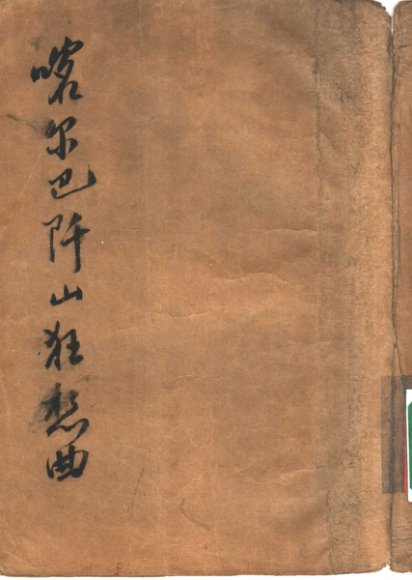 喀尔巴阡山狂想曲